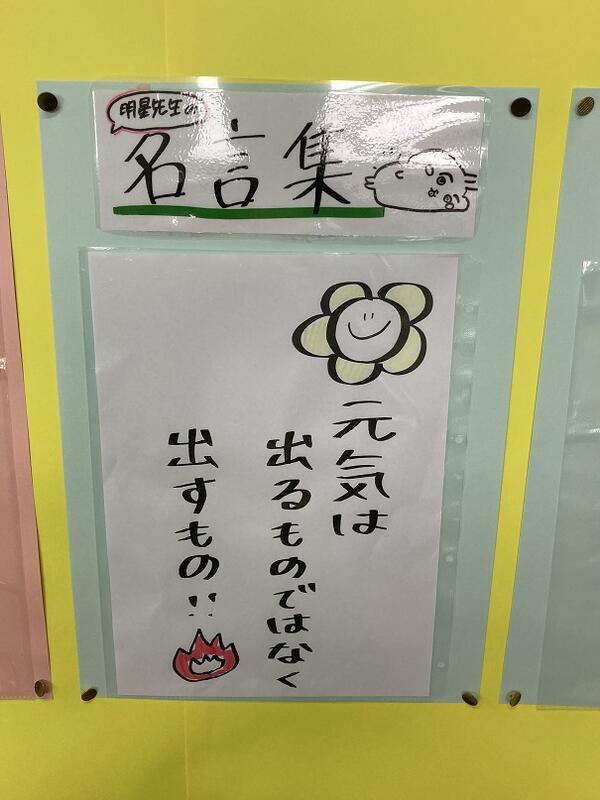 明星先生の
名言集
元気は
出るものではなく
出すもの!!